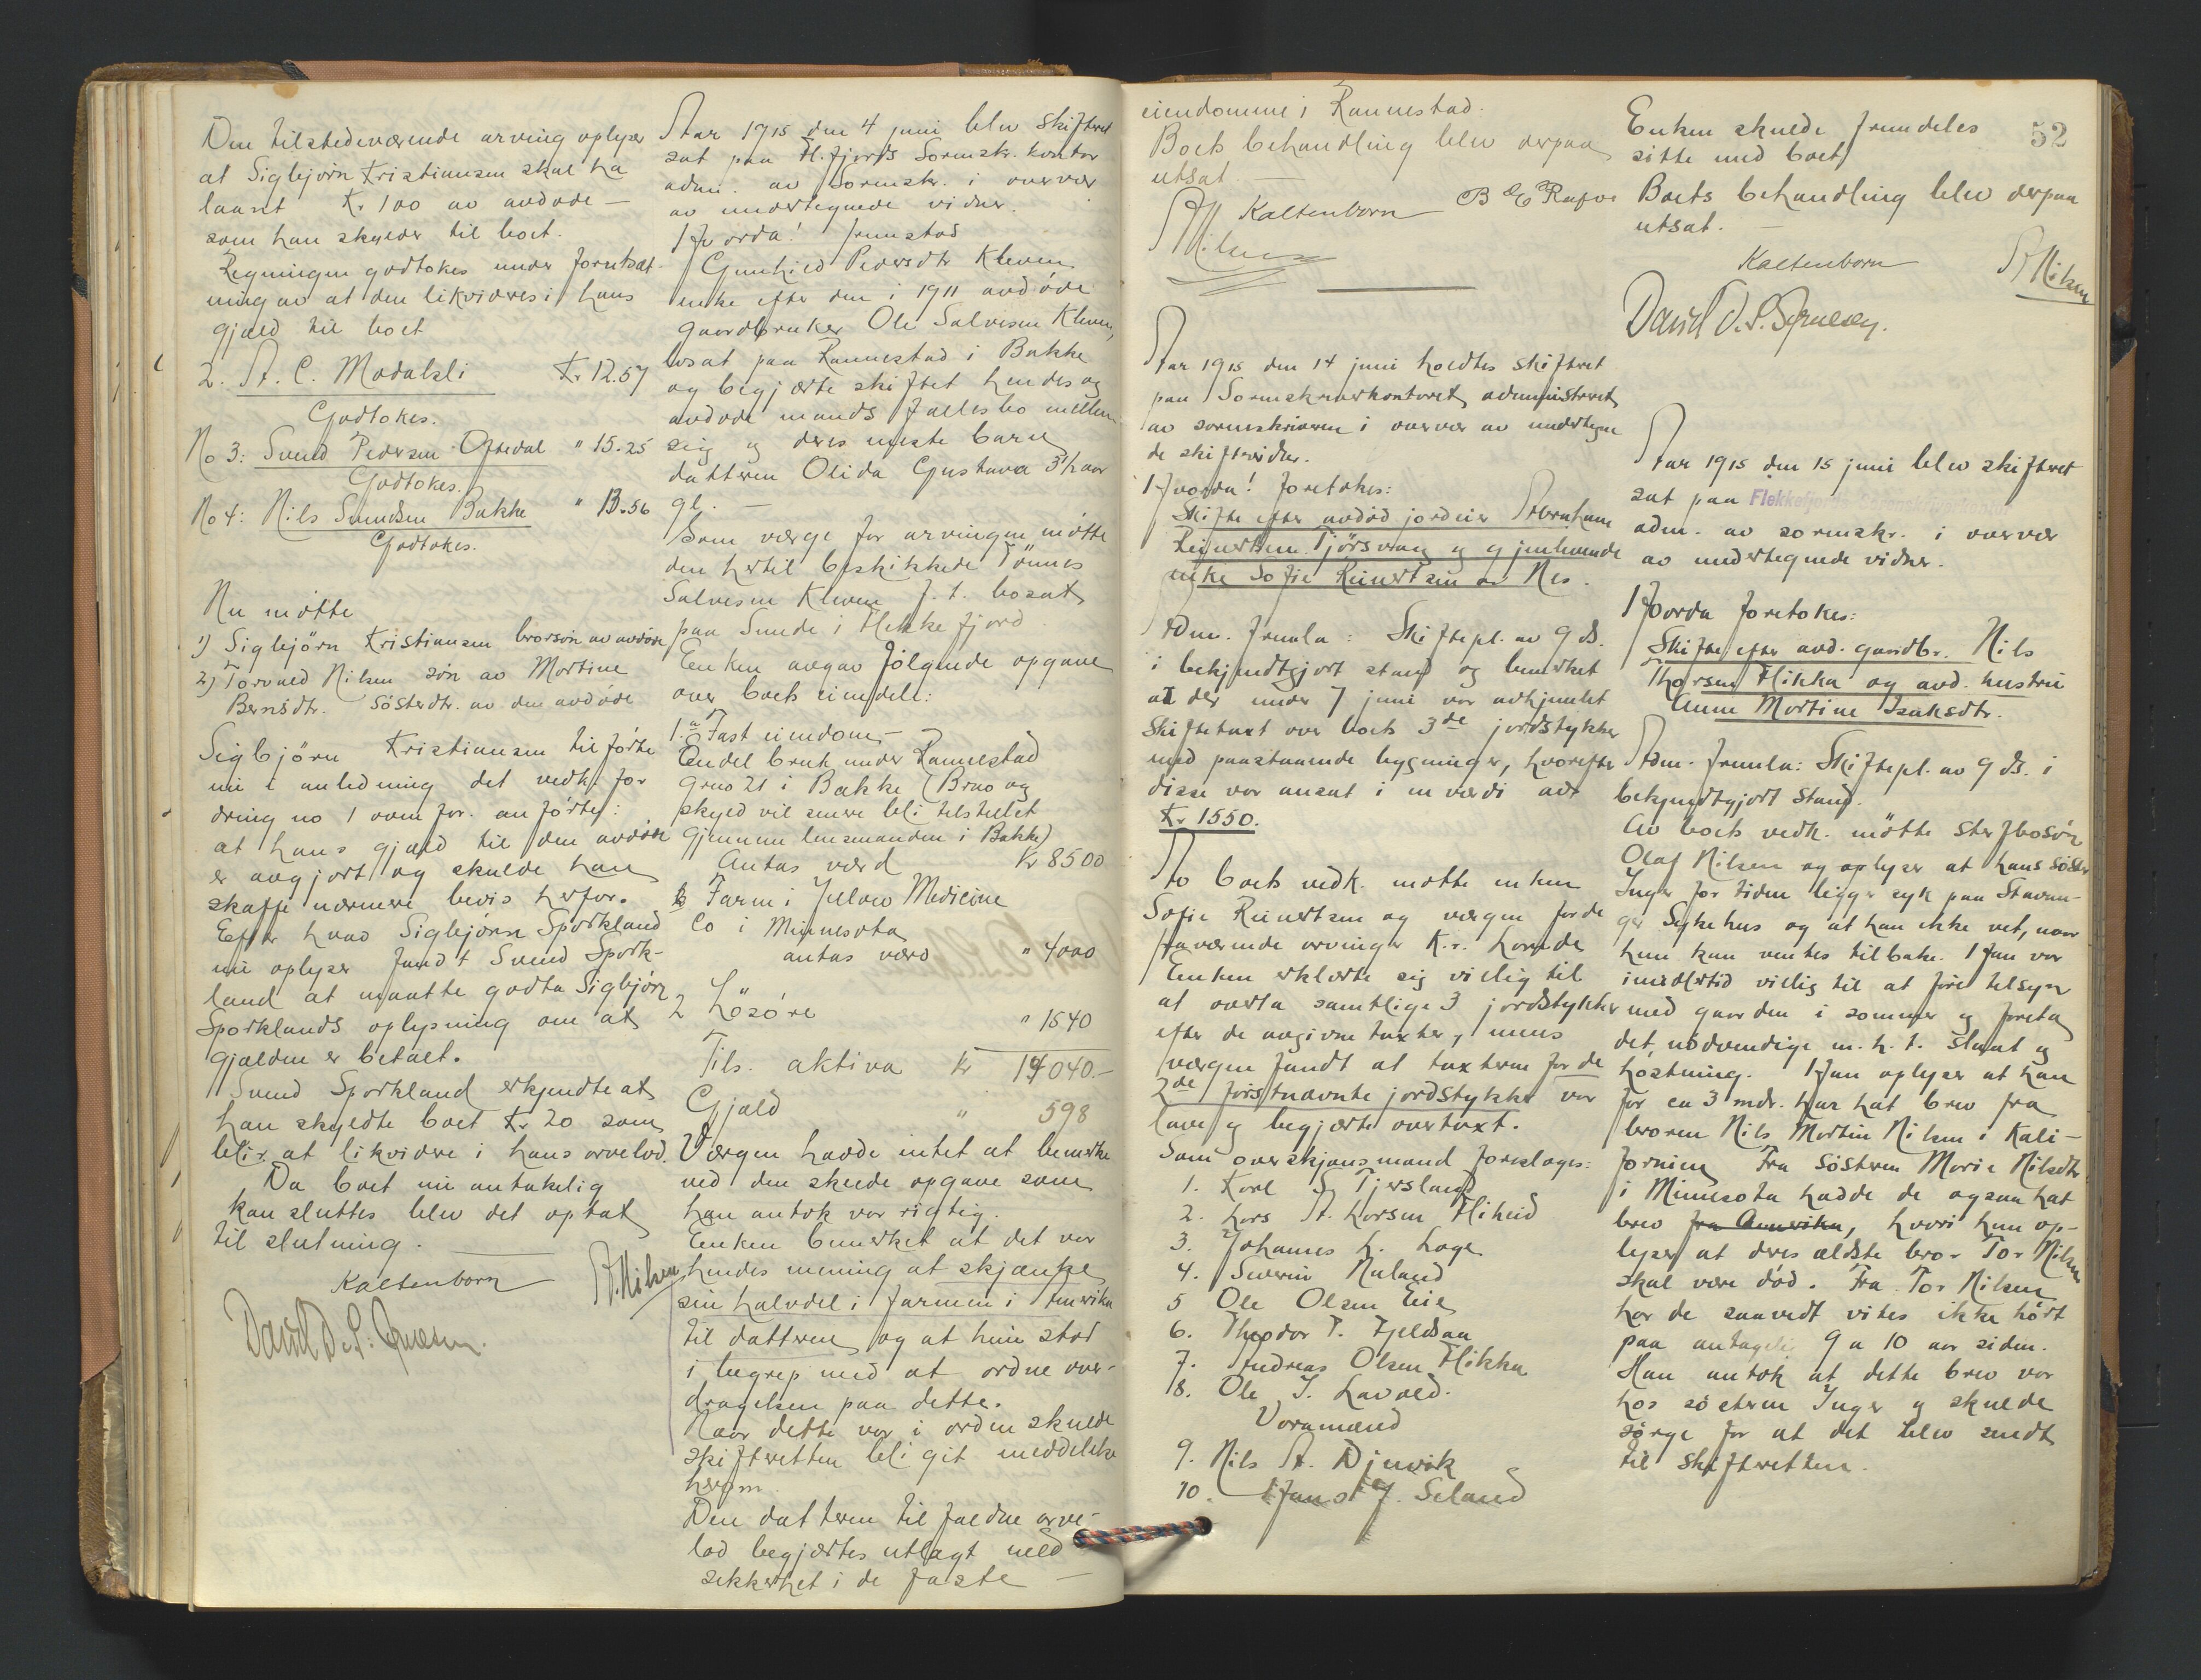 Den tilstedeværende arving oplyser
at Sigbjørn Kristiansen skal ha
laant Kr 100 av avdøde –
som han skylder til boet.
Regningen godtokes under forutsæt-
ning av at den likvideres i hans
gjæld til boet
2. A. C. Modalsli Kr 12.57
Godtokes.
No 3: Svend Pedersen Oftedal " 15.25
Godtokes.
No 4: Nils Svendsen Bakke " 13.56
Godtokes.
Nu møtte
1) Sigbjörn Kristiansen brorsön av avdöde
2) Torvald Nilsen søn av Martine
Berntsdtr. søsterdtr. av den avdöde
Sigbjörn Kristiansen tilførte
nu i anledning det vedk. for
dring no 1 oven for. anførte:
at hans gjæld til den avdøde
er avgjort og skulde han
skaffe nærmere bevis herfor.
Efter hvad Sigbjörn Sporkland
nu oplyser fandt Svend Spork-
land at maatte godta Sigbjörn
Sporklands oplysning om at
gjælden er betalt.
Svend Sporkland erkjendte at
han skyldte boet Kr 20 som
blir at likvidere i hans arvelod.
Da boet nu antakelig
kan sluttes blev det optat
til slutning.
Kaltenborn A. Nilsen
David D. S.
Aar 1915 den 4 juni blev skifteret
sat paa Fl.fjords Sorenskr. kontor
adm. av Sorenskr. i overvær
av undertegnede vidner.
Hvorda! fremstod
Gunhild Pedersdtr Kleven
enke efter den i 1911 avdöde
gaardbruker Ole Salvesen Kleven,
bosat paa Rannestad i Bakke
og begjærte skiftet hendes og
avdøde mands fællesbo mellem
sig og deres eneste barn
datteren Olida Gustava 3½ aar
gl. –
Som værge for arvingen møtte
den hertil beskikkede Tönnes
Salvesen Kleven f. t. bosat
paa Sunde i Flekkefjord.
Enken avgav følgende opgave
over boets eiendele:
1. a Fast eiendom –
Endel bruk under Rannestad
grno 21 i Bakke (Brno og
skyld vil senere bli tilstillet
gjennem lensmanden i Bakke)
Antas værd Kr 8500
b Farm i Yellow Medicine
Co i Minnesota
antas værd " 4000
2 Løsøre " 1540
Tils. aktiva Kr 14040.–
Gjæld " 598
Værgen hadde intet at bemerke
ved den skeede opgave som
han antok var rigtig.
Enken bemerket at det var
hendes mening at skjænke
sin halvdel i farmen i Amerika
til datteren og at hun stod
i begrep med at ordne over-
dragelsen paa dette.
Naar dette var i orden skulde
skifteretten bli git meddelelse
herom.
Den datteren tilfaldne arve-
lod begjærtes utlagt med
sikkerhet i de faste –
52
eiendomme i Rannestad.
Boets behandling blev derpaa
utsat –
Kaltenborn B E Rafos
A Nilsen
Aar 1915 den 14 juni holdtes skifteret
paa Sorenskriverkontoret, administreret
av sorenskriveren i overvær av undertegne
de skiftevidner.
Hvorda! foretokes:
Skifte efter avdød jordeier Abraham
Reinertsen Tjørsvaag og gjenlevende
enke Sofie Reinertsen av Nes.
Adm. fremla: Skiftepl. av 9 ds.
i bekjendtgjort stand og bemerket
at der under 7 juni var avhjemlet
skiftetakst over boets 3de jordstykker
med paastaaende bygninger, hvorefter
disse var ansat i en værdi av
Kr 1550.
Av boets vedk. møtte enken
Sofie Reinertsen og værgen for de
fraværende arvinger K.r. Lunde
Enken erklærte sig villig til
at overta samtlige 3 jordstykker
efter de avgivne takster, mens
værgen fandt at taksterne for de
2de førstnævnte jordstykker var
lave og begjærte overtakst.
Som overskjønsmænd foreslages:
1. Karl S. Tjersland
2. Lars A. Larsen Flikeid
3. Johannes L. Loge
4. Severin Nuland
5 Ole Olsen Eie
6. Theodor T. Fjeldsaa
7. Andreas Olsen Flikka
8. Ole J. Lavold.
Varamænd
9. Nils A. Djuvik
10. Hans J. Seland
Enken skulde fremdeles
sitte med boet
Boets behandling blev derpaa
utsat. –
Kaltenborn A Nilsen
David D. S.
Aar 1915 den 15 juni blev skifteret
sat paa Flekkefjords
adm. av sorenskr. i overvær
av undertegnede vidner.
Hvorda foretokes:
Skifte efter avd. gaardbr. Nils
Thorsen Flikka og avd. hustru
Anne Martine Isaksdtr.
Adm. fremla: Skiftepl. av 9 ds. i
bekjendtgjort stand.
Av boets vedk. møtte sterfbosøn
Olaf Nilsen og oplyser at hans søster
Inger for tiden ligger syk paa Stavan-
ger Sykehus og at han ikke vet, naar
hun kan ventes tilbake. Han var
imidlertid villig til at føre tilsyn
med gaarden i sommer og foreta
det nødvendige m. h. t. slaat og
høstning. Han oplyser at han
for ca 3 mdr. har hat brev fra
broren Nils Martin Nilsen i Kali-
fornien. Fra søsteren Marie Nilsdtr
i Minnesota hadde de ogsaa hat
brev fra Amerika, hvori hun op-
lyser at deres ældste bror Tor Nilsen
skal være død. Fra Tor Nilsen
har de saavidt vites ikke hørt
paa antagelig 9 a 10 aar siden.
Han antok at dette brev var
hos søsteren Inger og skulde
sørge for at det blev sendt
til skifteretten.